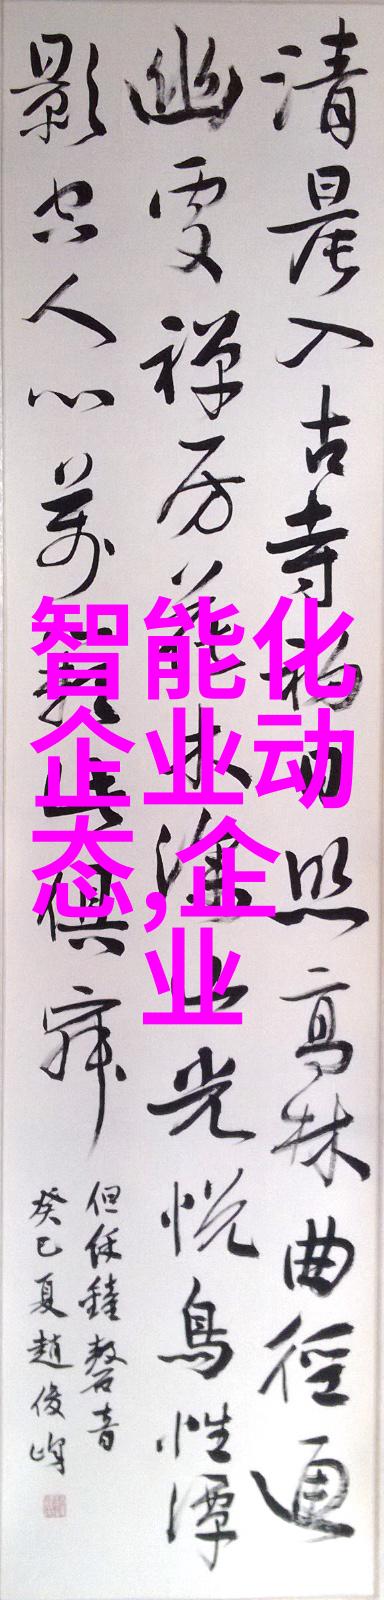 清晨入古寺初日照高林曲徑通
幽處禪房花木深山光悅鳥性潭
影空人心萬籟此俱寂
但餘鐘磬音
癸巳夏趙俊峰
智能化
企业动
态,企
业